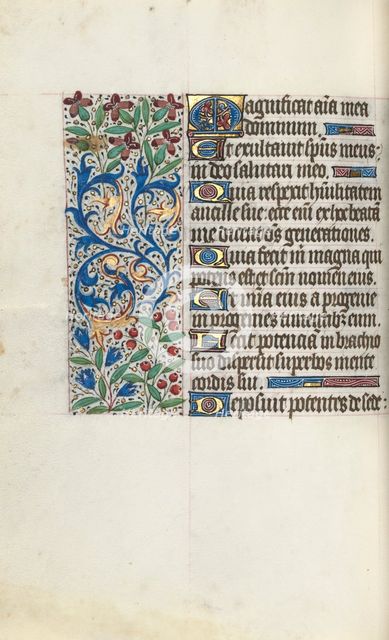 Magnificat aīa mea
dominum.
Et exultavit sp̄us meus
in deo salutari meo.
Quia respexit hūilitatem
ancille sue: ecce em̄ ex hoc beatā
me dicent om̄s generationes.
Quia fecit in magna qui
potens est et sc̄m nomen eius.
Et mīa eius a progenie
in progenies timentibz eum
Fecit potenciā in brachio
suo dispersit superbos mente
cordis sui.
Deposuit potentes de sede: